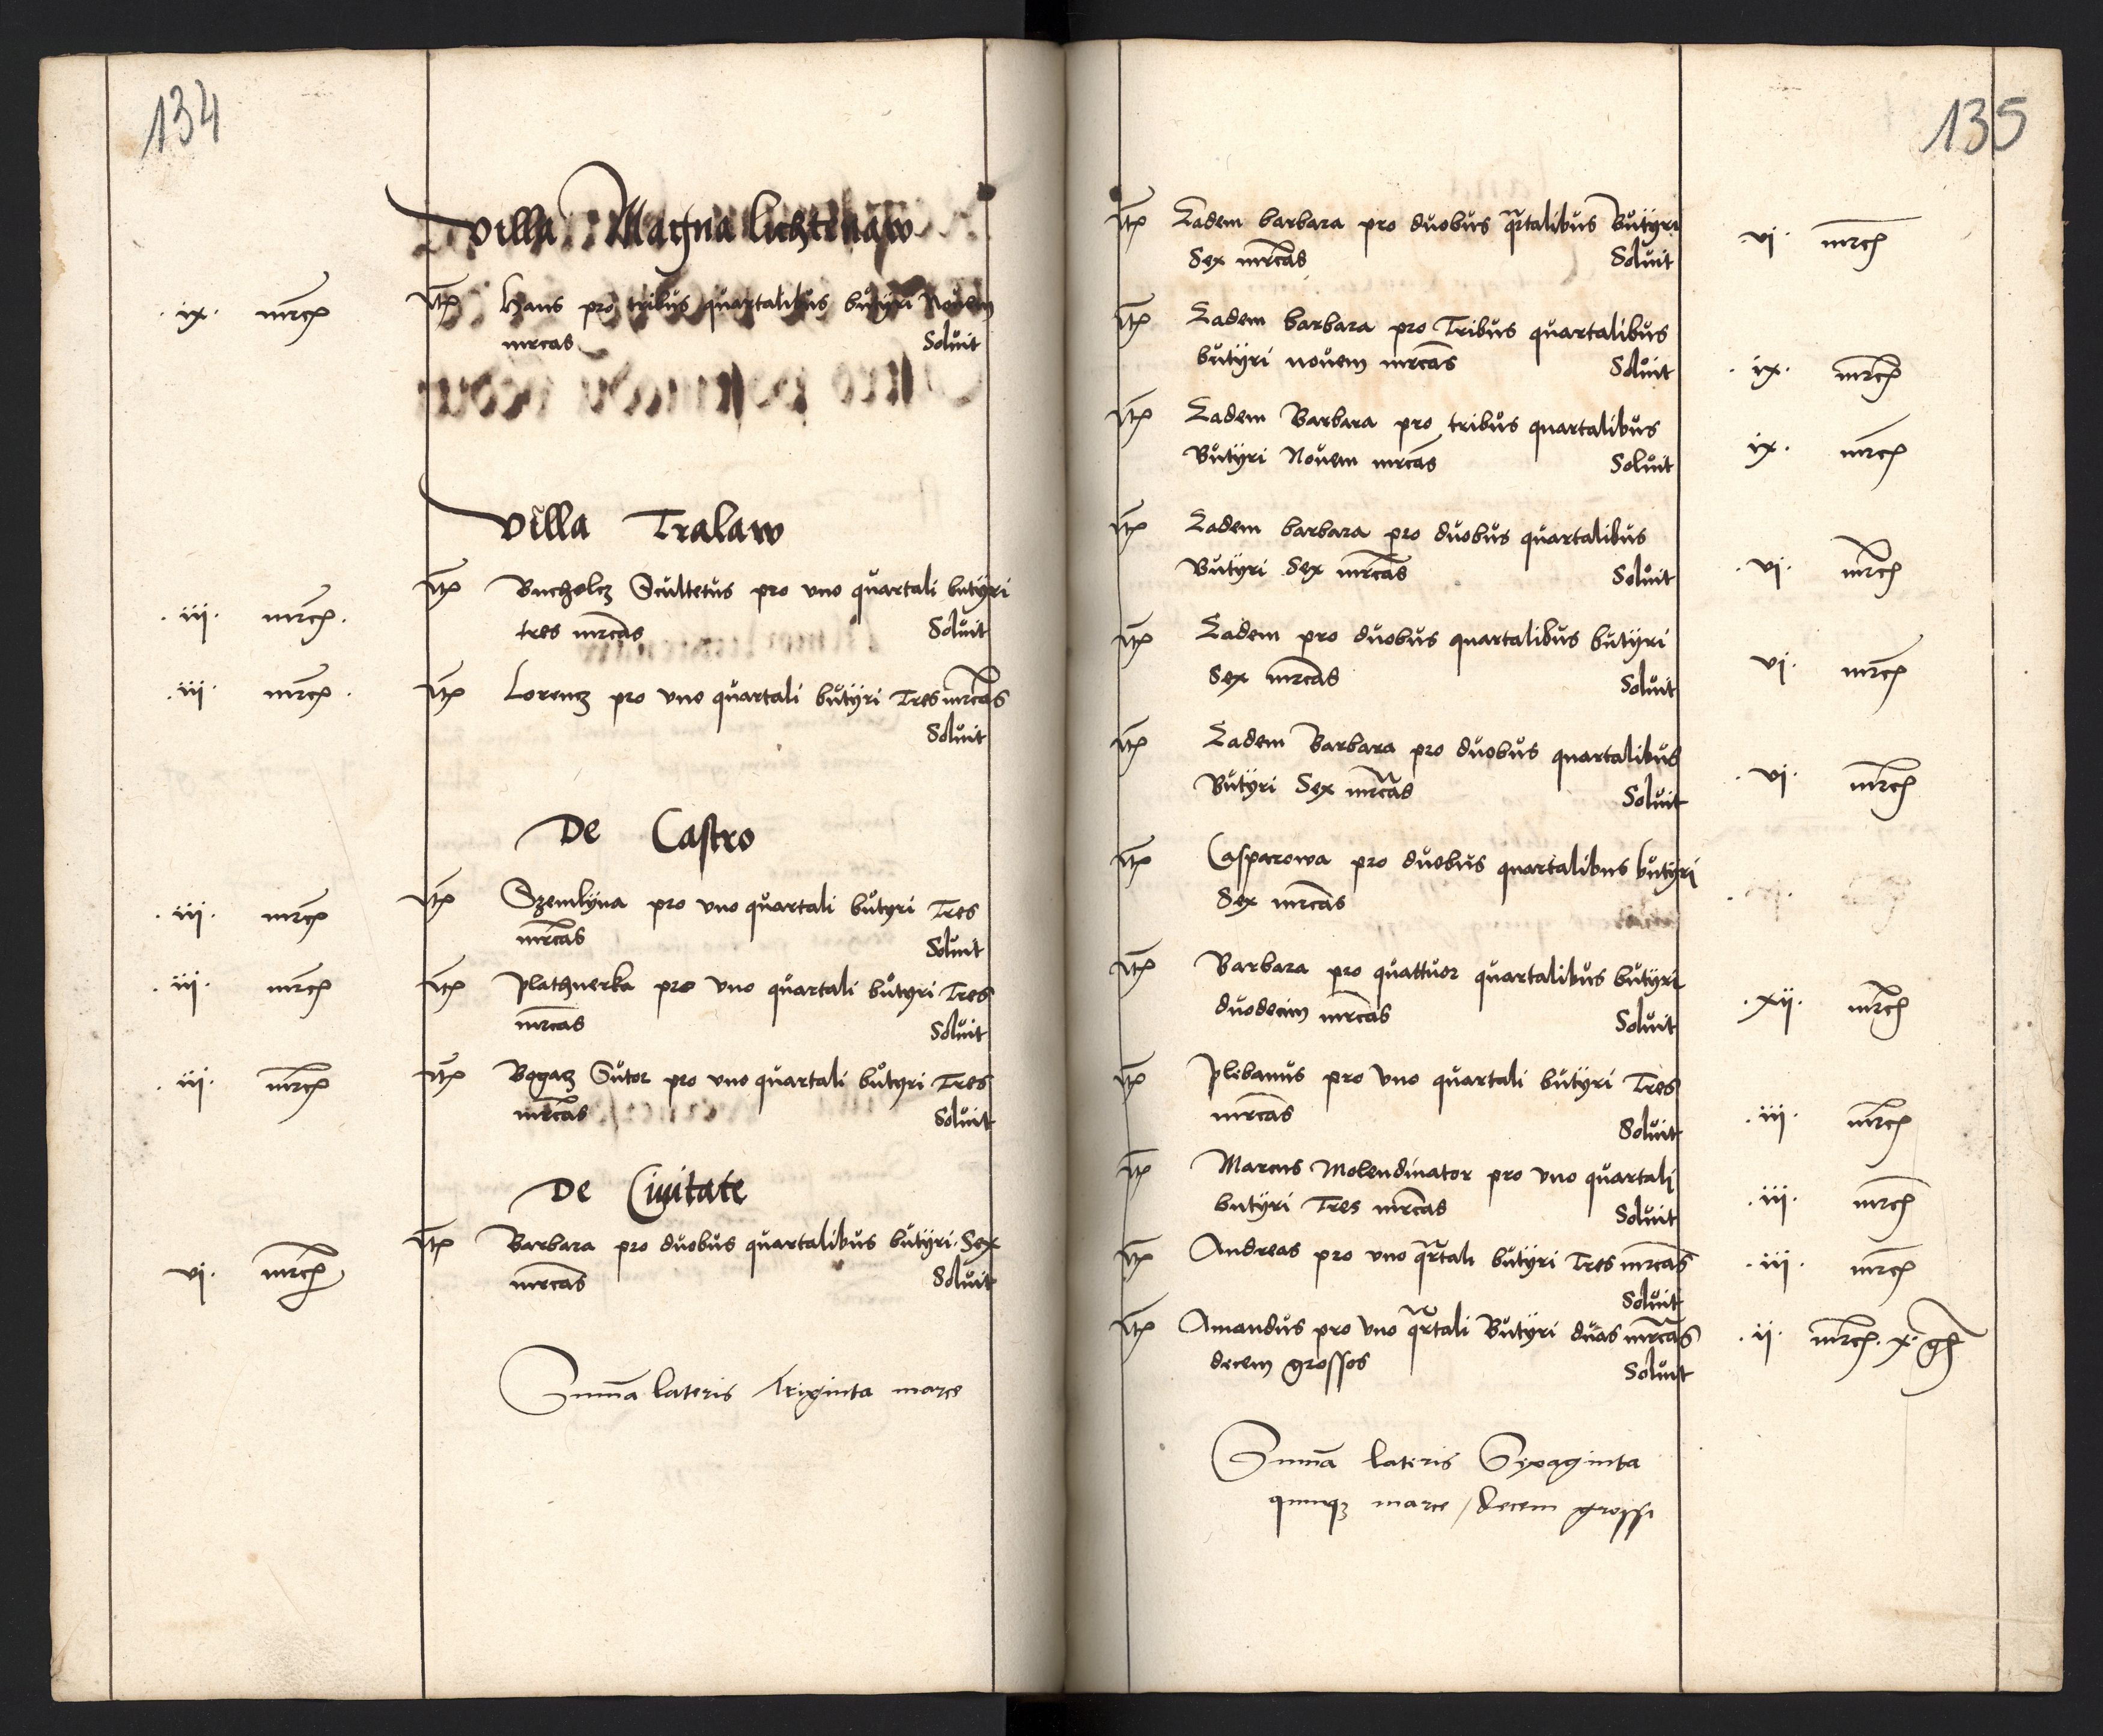 134
Villa Magna lichtenaw
Itm Hans pro tribus quartalibus butyri Novem
.ix. mrcę
mrcas Soluit
Villa Tralaw
Itm Bucholcz Scultetus pro vno quartali butyri
.iii. mrcę.
tres mrcas Soluit
.iii. mrcę. Itm Lorencz pro vno quartali butyri Tres mrcas
Soluit
De Castro
.iii. mrcę Itm Szemlyna pro vno quartali butyri Tres
mrcas Soluit
.iii. mrcę Itm plathnerka pro vno quartali butyri Tres
mrcas Soluit
.iii. mrcę Itm Bogacz Sutor pro vno quartali butyri Tres
mrcas Soluit
De Ciuitate
Itm Barbara pro duobus quartalibus butyri Sex
vi. mrcę
mrcas Soluit
Sum̃a lateris Triginta marce
135
Itm Eadem barbara pro duobus qrtalibus Butyri
.vi. mrcę
Sex mrcas Soluit
Itm Eadem barbara pro Tribus quartalibus
butyri nouem mrcas Soluit .ix. mrcę
Itm Eadem Barbara pro tribus quartalibus
Butyri Nouem mrcas Soluit ix. mrcę
Itm Eadem barbara pro duobus quartalibus
Butyri Sex mrcas Soluit .vi. mrcę
Itm Eadem pro duobus quartalibus butyri
Sex mrcas Soluit vi. mrcę
Itm Eadem Barbara pro duobus quartalibus
Butyri Sex mrcas Soluit .vi. mrcę
Itm Casparowa pro duobus quartalibus butyri
Sex mrcas
Itm Barbara pro quattuor quartalibus butyri
duodecim mrcas Soluit .xii. mrcę
Itm plebanus pro vno quartali butyri Tres
mrcas Soluit .iii. mrcę
Itm Marcus Molendinator pro vno quartali
butyri Tres mrcas Soluit .iii. mrcę
Itm Andreas pro vno qrtali butyri Tres mrcas .iii. mrcę
Soluit
Itm Amandus pro vno qrtali Butyri duas mrcas .ii. mrcę. x. gͬ
decem grossos Soluit
Sum̃a lateris Sexaginta
quinqꝫ marce / decem grossi